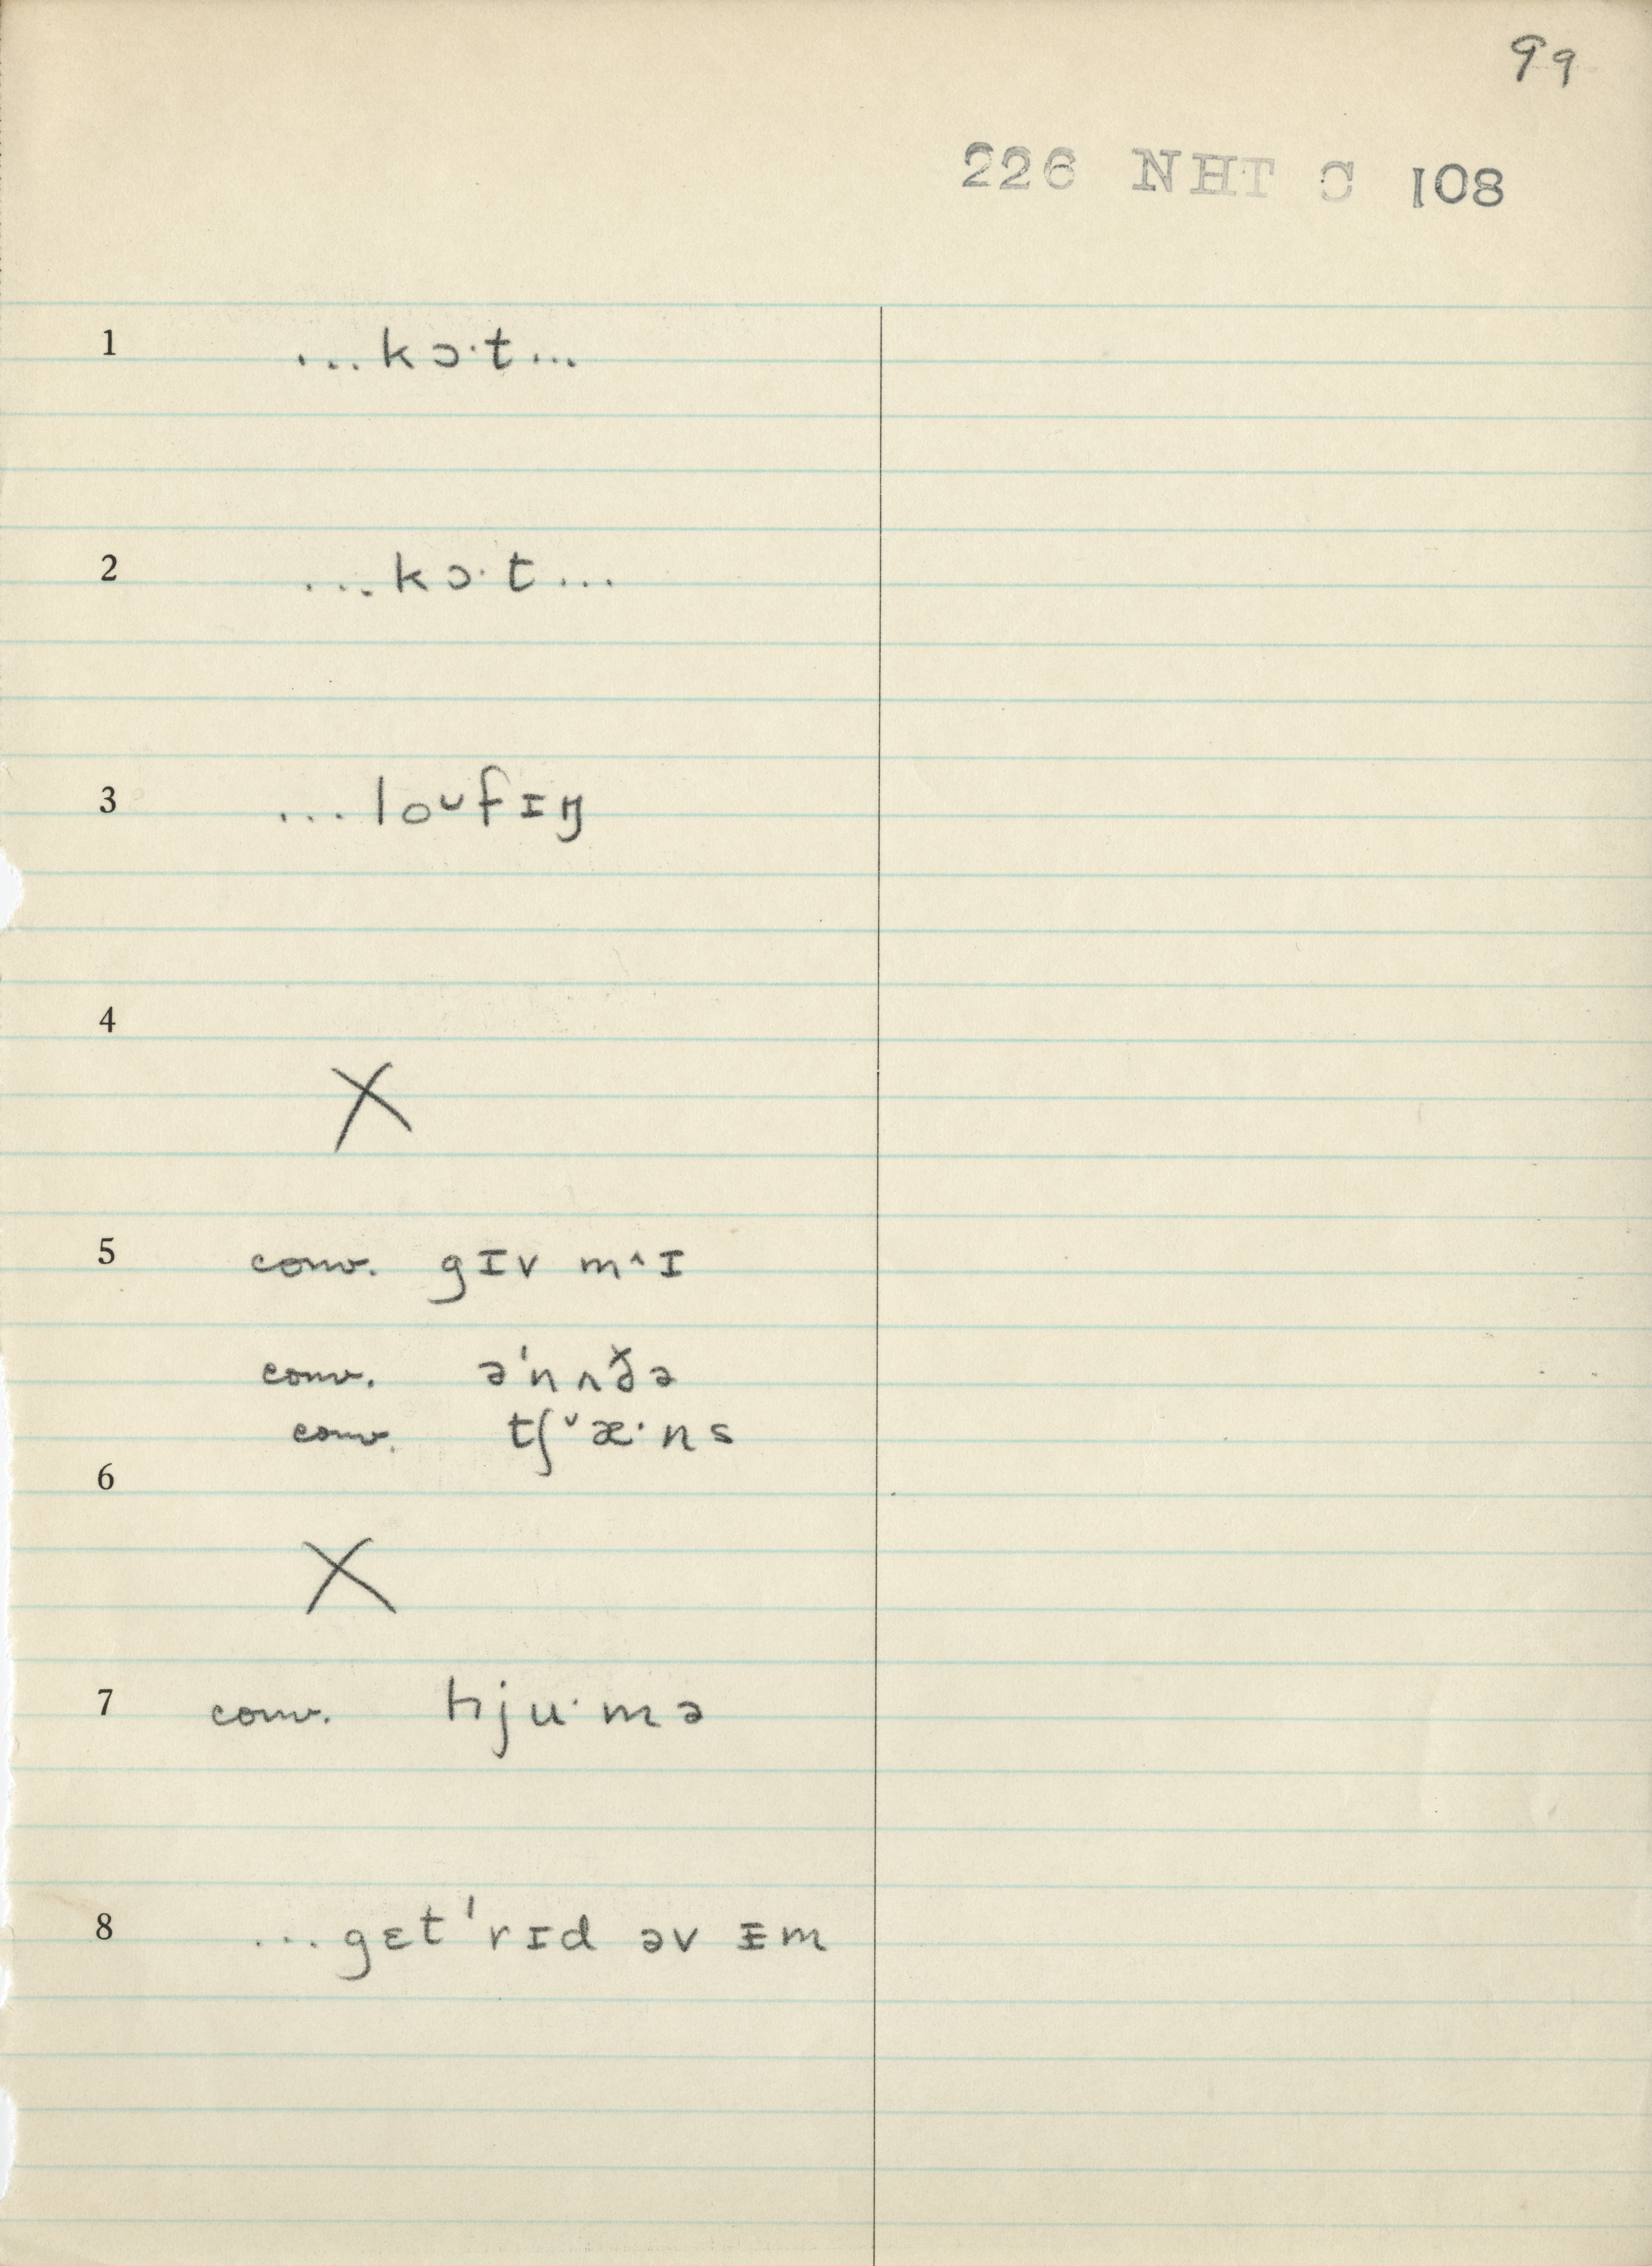 99
226 NHT C 108
1 ...kɔ·t...
2 ...kɔ·t...
3 ...loᴜfɪŋ
4
X
5 conv. gɪv m^ɪ
conv. ə'nʌðə
conv. tʃ˅æ·ns
6
X
7 conv. hju·mə
8 ...gɛt'rɪd əv ᵻm